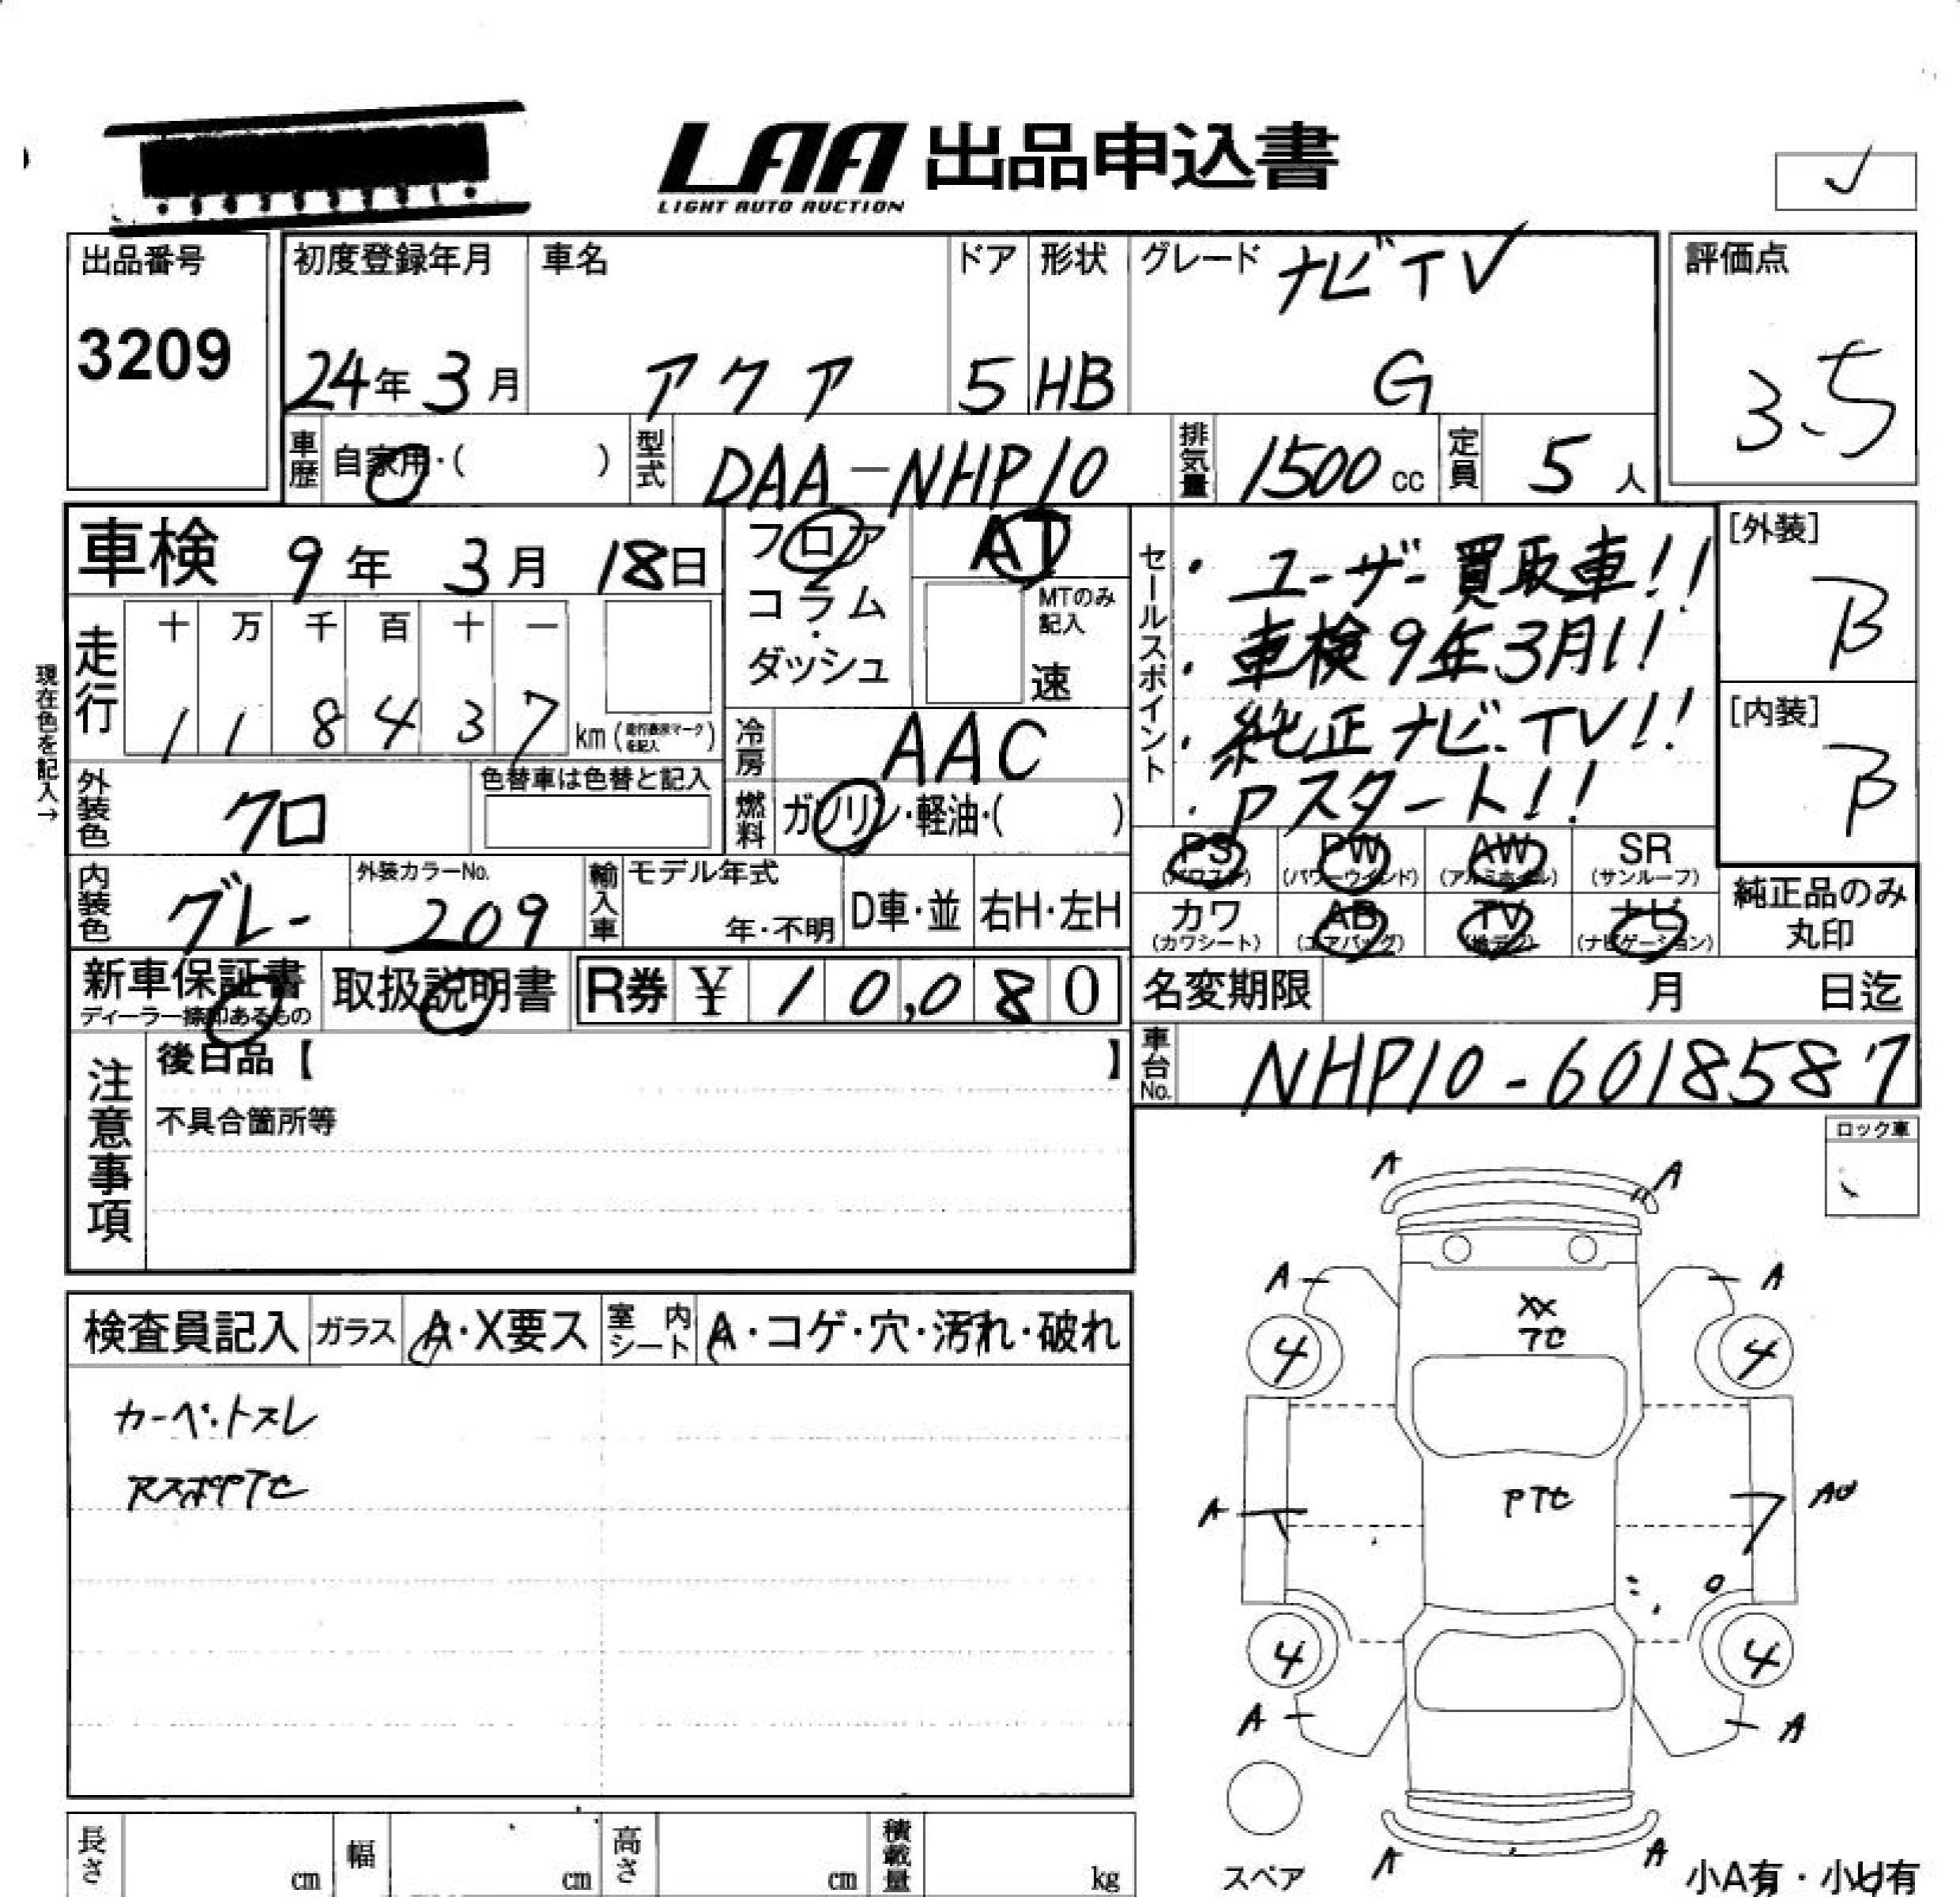 LAA 出品申込書
LIGHT AUTO AUCTION
出品番号
3209
初度登録年月
24年 3月
車名
アクア
ドア
5
形状
HB
グレード
ナビTV
G
評価点
3.5
車歴
自家用・( )
型式
DAA-NHP10
排気量
1500cc
定員
5人
車検 9年 3月 18日
フロア
コラム
・
ダッシュ
AT
MTのみ
記入
速
セールスポイント
・ユーザー買取車!!
・車検9年3月!!
・純正ナビ.TV!!
・Pスタート!!
[外装]
B
[内装]
B
現在色を記入→
走行
十 万 千 百 十 一
1 1 8 4 3 7 km
冷房
AAC
燃料
ガソリン・軽油・( )
外装色
クロ
色替車は色替と記入
内装色
グレー
外装カラーNo.
209
輸入車
モデル年式
年・不明
D車・並
右H・左H
PS
(パワステ)
PW
(パワーウインド)
AW
(アルミホイル)
SR
(サンルーフ)
カワ
(カワシート)
AB
(エアバッグ)
TV
(地デジ)
ナビ
(ナビゲーション)
純正品のみ
丸印
新車保証書
ディーラー捺印あるもの
取扱説明書
R券 ¥ 10,080
名変期限 月 日迄
車台No.
NHP10-6018587
注意事項
後日品【 】
不具合箇所等
ロック車
検査員記入
ガラス
A・X要ス
室内シート
A・コゲ・穴・汚れ・破れ
A A
A A
XX
TC
4 4
PTC
A AU
4 4
A A
A A
スペア
小A有・小U有
長さ cm
幅 cm
高さ cm
積載量 kg